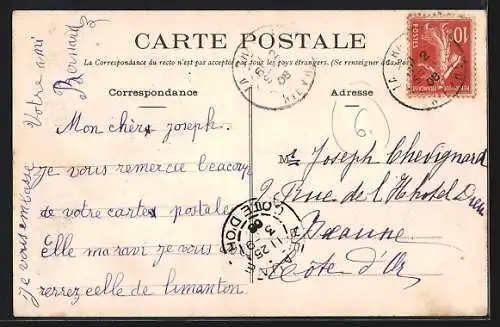 CARTE POSTALE
La Correspondance du recto n'est pas acceptée par tous les pays étrangers. (Se renseigner à la Poste)
Correspondance
Adresse
Mon cher joseph.
je vous remercie beacoup
de votre cartes postale
elle ma ravi je vous
verrez celle de limanton
je vous embasse
Votre ami
Bernard
Mr Joseph Chevignard
2 Rue de l'Hhotel Dieu
Beaune
Côte d'Or
6
POSTES
10
BEAUNE
CÔTE D'OR
11 25
3 - 9
08